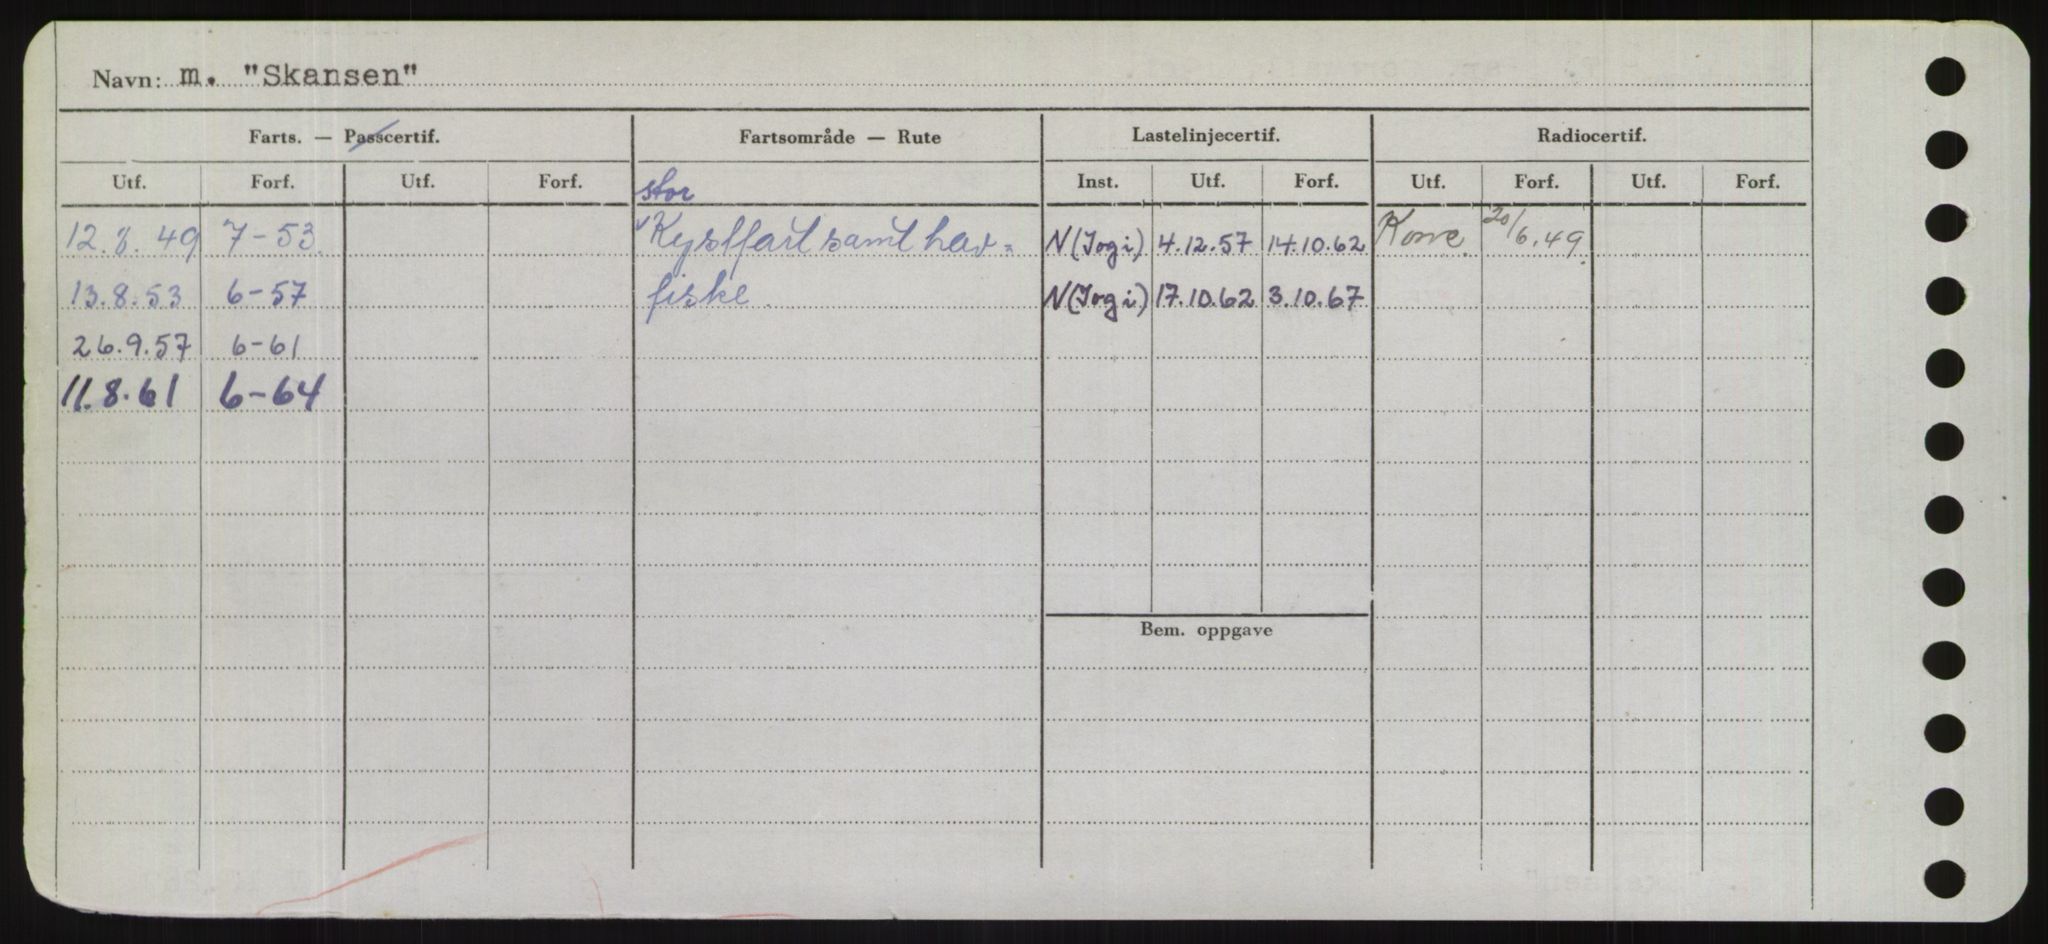 Navn: m. "Skansen"
Farts. — Passcertif. Fartsområde — Rute Lastelinjecertif. Radiocertif.
Utf. Forf. Utf. Forf. stor Inst. Utf. Forf. Utf. Forf. Utf. Forf.
12.8.49 7-53. Kystfart samt hav= N(I og i) 4.12.57 14.10.62 20/6.49.
13.8.53 6-57 fiske. N(I og i) 17.10.62 3.10.67
26.9.57 6-61
11.8.61 6-64
Bem. oppgave